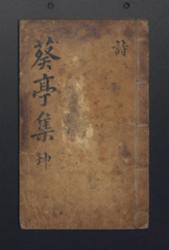 葵亭集
坤
詩